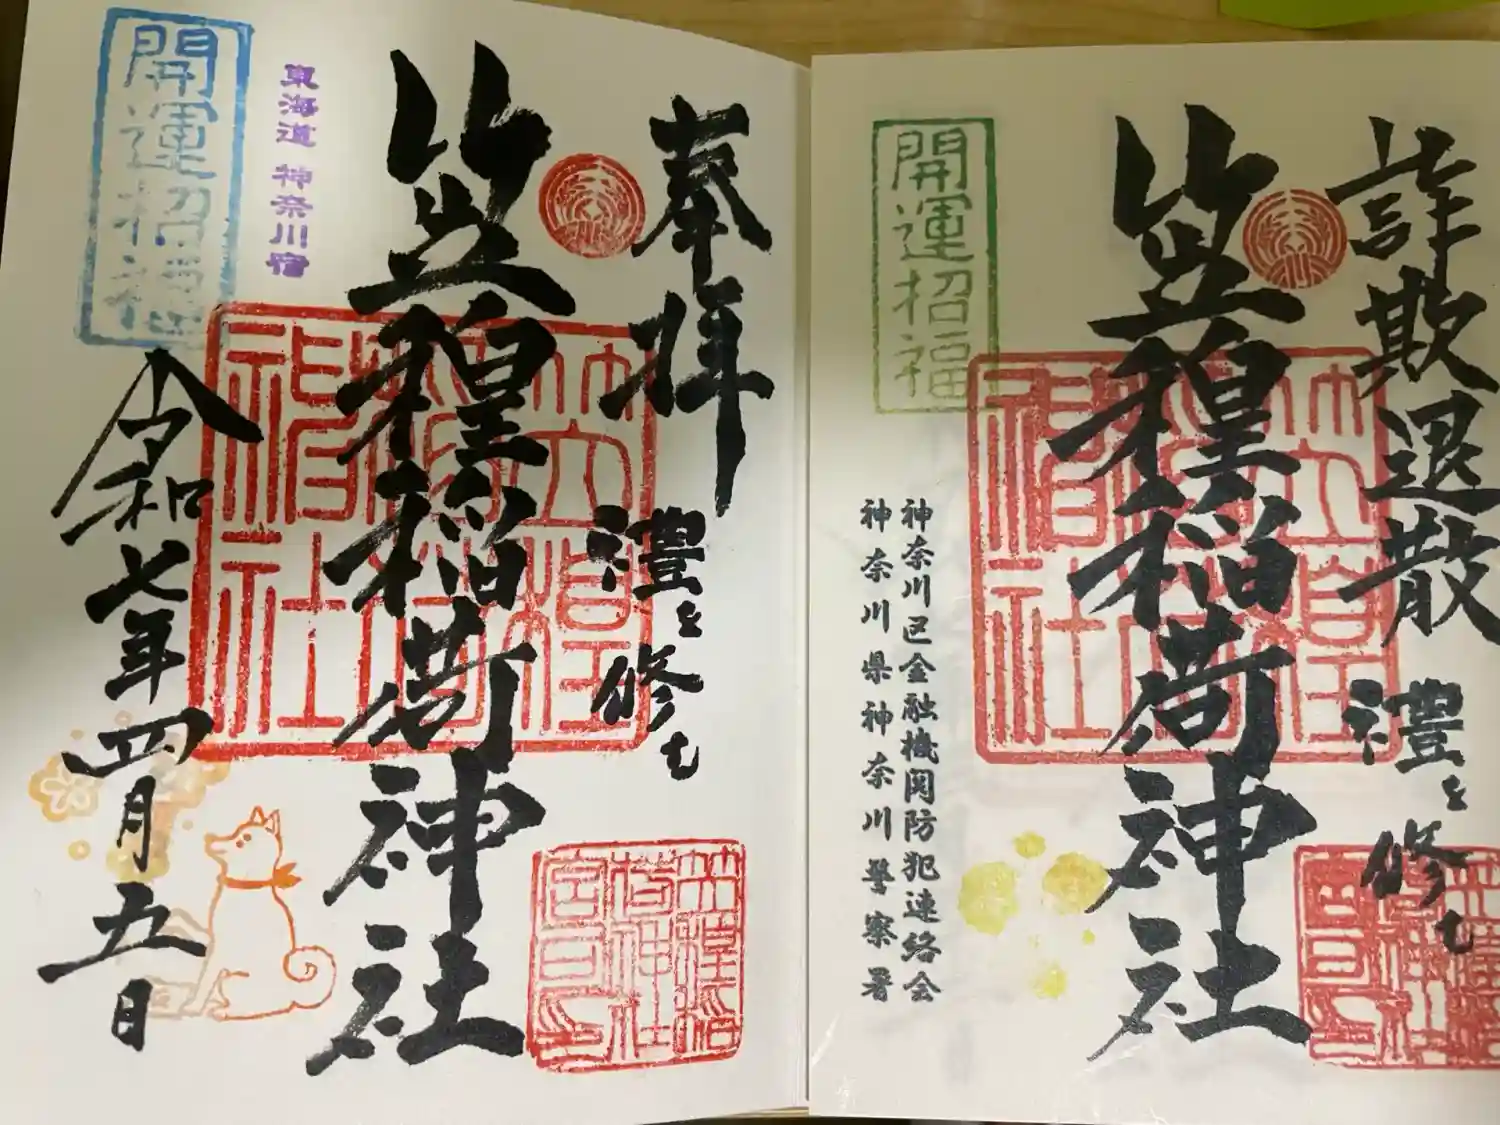 奉拝
禮を修む
笠䅣稲荷神社
東海道 神奈川宿
開運招福
令和七年四月五日
笠䅣稲
荷神社
宮司之印
詐欺退散
禮を修む
笠䅣稲荷神社
開運招福
神奈川区金融機関防犯連絡会
神奈川県神奈川警察署